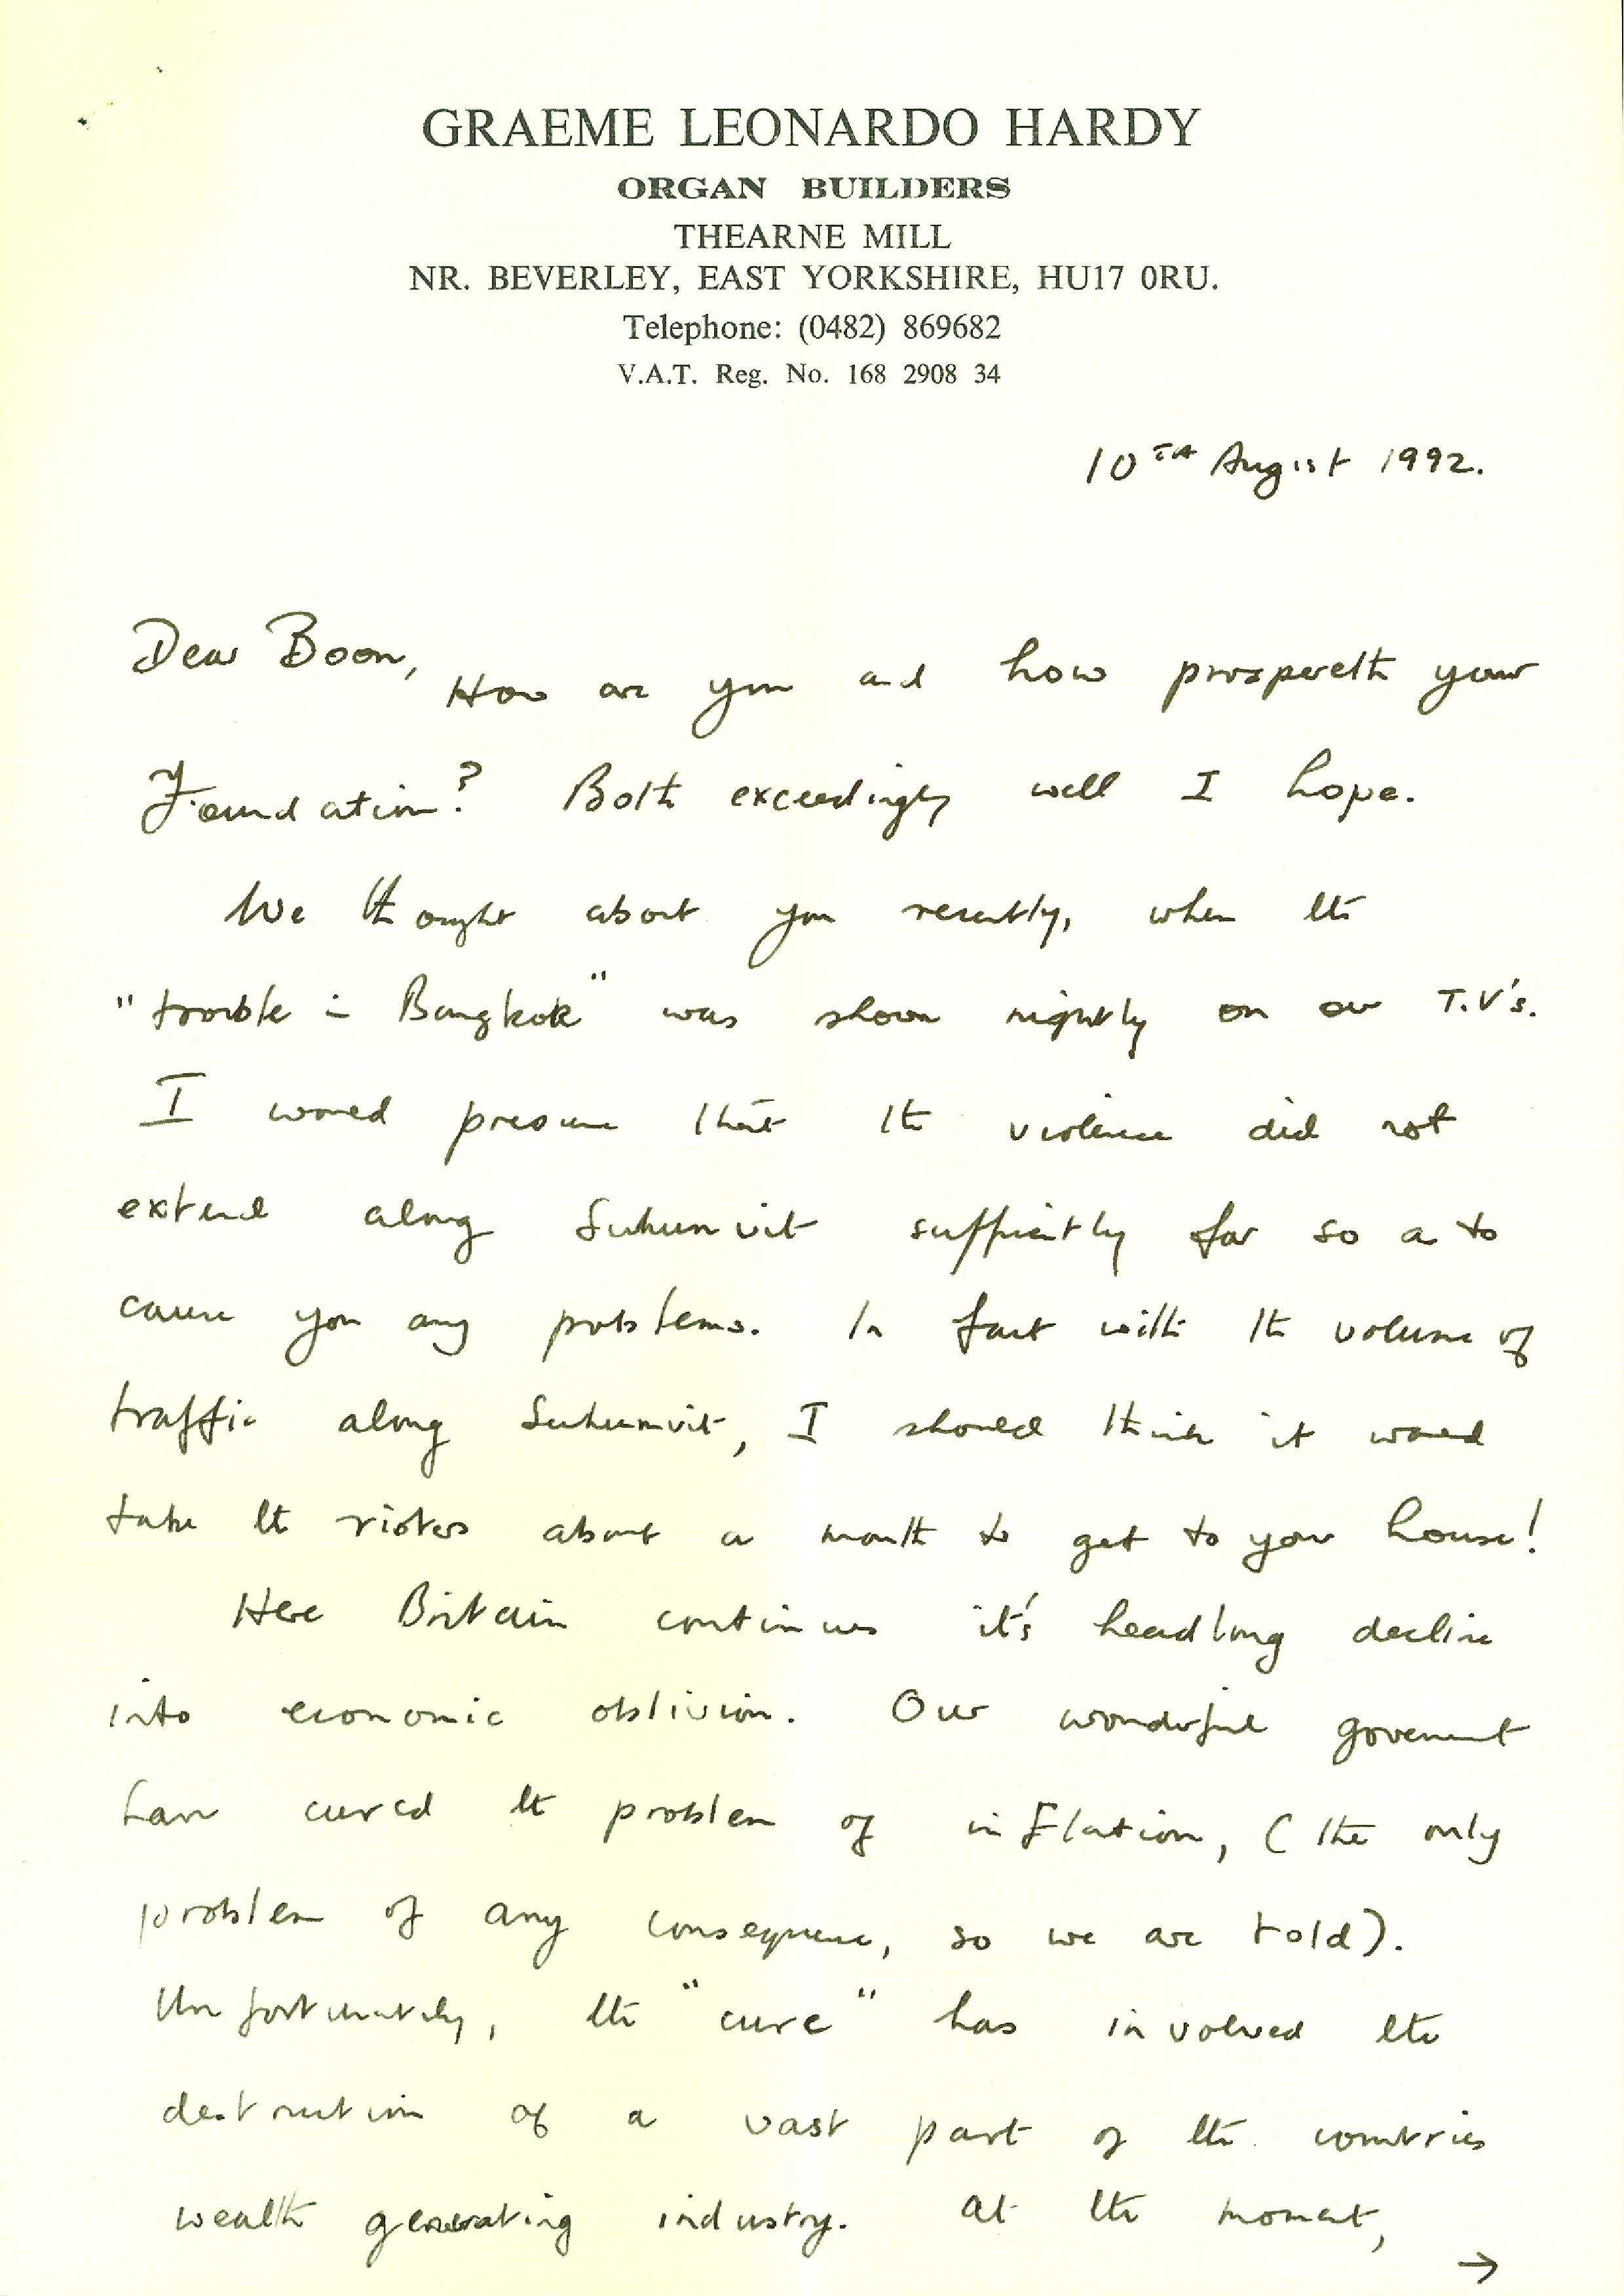 GRAEME LEONARDO HARDY
ORGAN BUILDERS
THEARNE MILL
NR. BEVERLEY, EAST YORKSHIRE, HU17 0RU.
Telephone: (0482) 869682
V.A.T. Reg. No. 168 2908 34
10TH August 1992.
Dear Boon,
How are you and how prospereth your
Foundation? Both exceedingly well I hope.
We thought about you recently, when the
"trouble in Bangkok" was shown nightly on our T.V's.
I would presume that the violence did not
extend along Sukumvit sufficiently far so as to
cause you any problems. In fact with the volume of
traffic along Sukumvit, I should think it would
take the rioters about a month to get to your house!
Here Britain continues it's headlong decline
into economic oblivion. Our wonderful goverment
have cured the problem of inflation, (the only
problem of any consequence, so we are told).
Unfortunately, the "cure" has involved the
destruction of a vast part of the countries
wealth generating industry. At the moment,
→